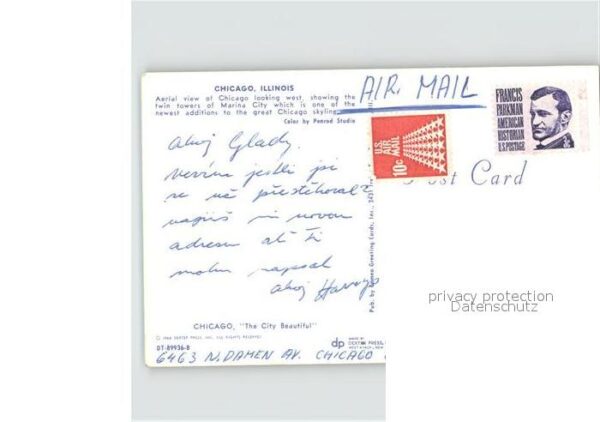 CHICAGO, ILLINOIS
Aerial view of Chicago looking west, showing the
twin towers of Marina City which is one of the
newest additions to the great Chicago skyline.
Color by Penrod Studio
AIR MAIL
FRANCIS
PARKMAN
AMERICAN
HISTORIAN
U.S. POSTAGE
3c
U.S.
AIR
MAIL
10c
Post Card
Ahoj Glady.
nevím jestli jsi
se už přestěhoval?
napiš mi novou
adresu ať ti
mohu napsat
ahoj
CHICAGO, "The City Beautiful"
DT-89936-B
dp
DEXTER PRESS,
6463 N. DAMEN AV. CHICAGO
privacy protection
Datenschutz